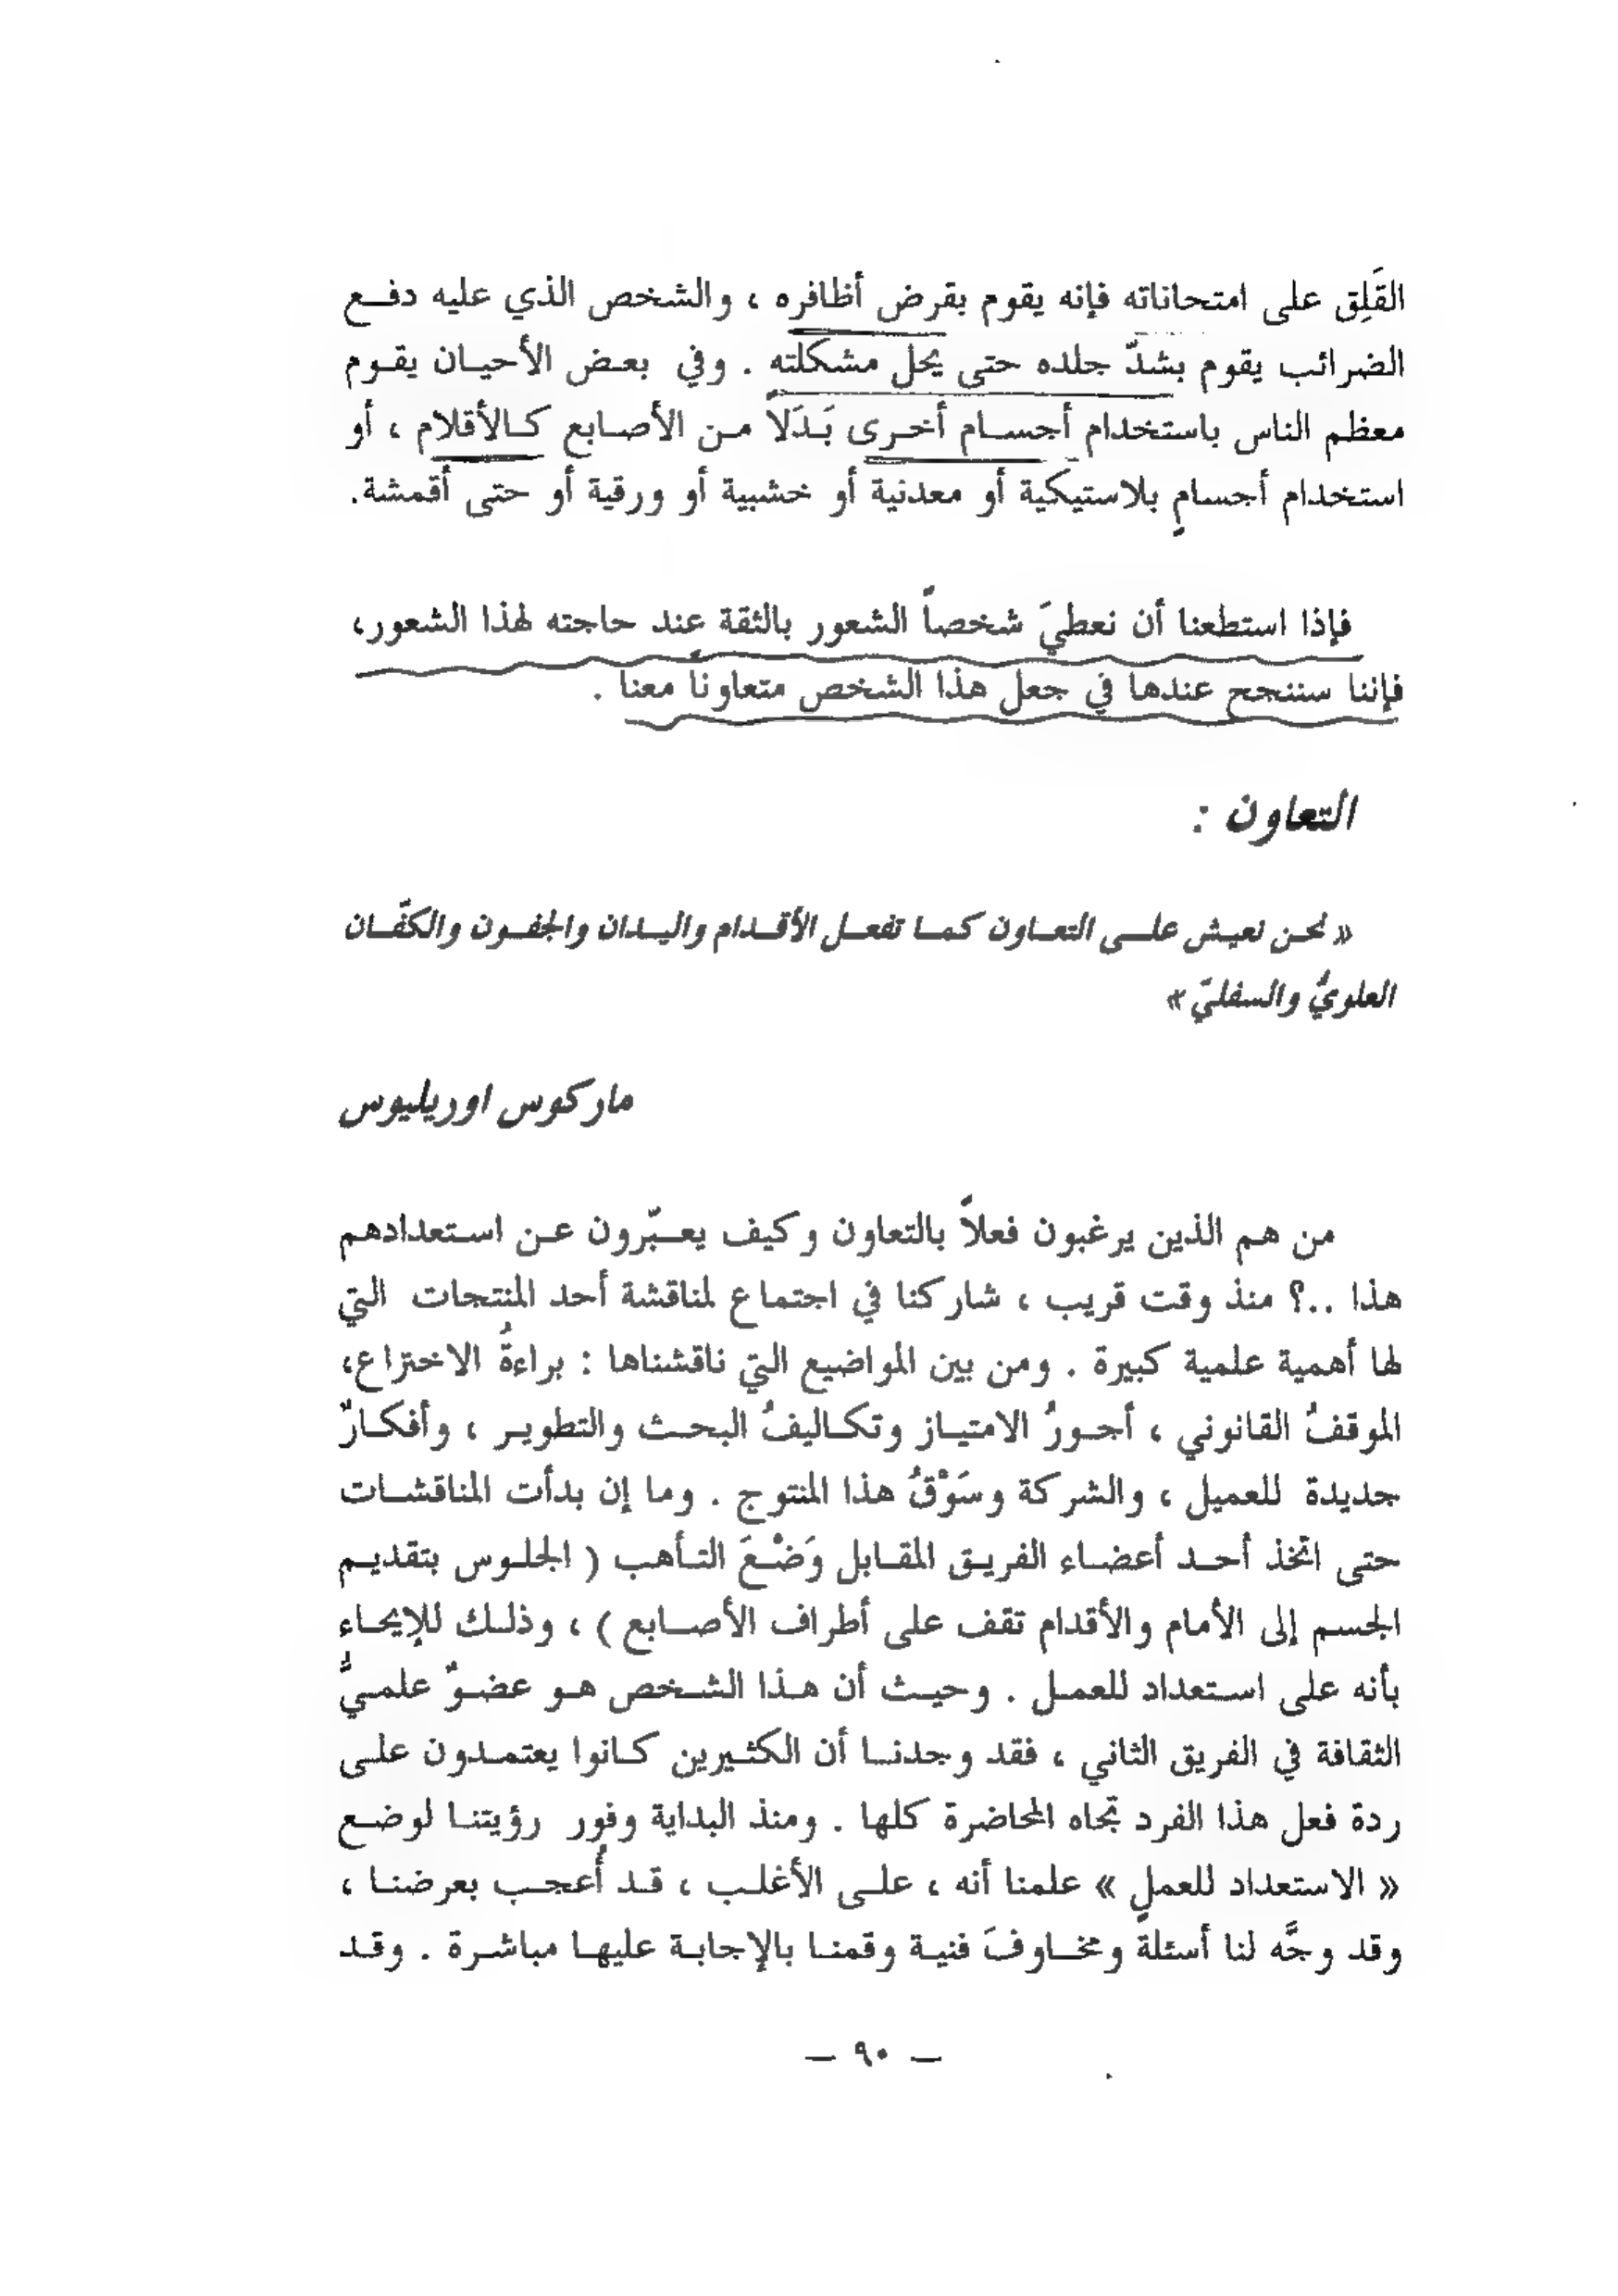 القَلِق على امتحاناته فإنه يقوم بقرض أظافره ، والشخص الذي عليه دفـع
الضرائب يقوم بشدّ جلده حتى يحل مشكلته . وفي بعـض الأحيـان يقـوم
معظم الناس باستخدام أجسـام أخـرى بَـدَلاً مـن الأصـابع كـالأقلام ، أو
استخدام أجسامٍ بلاستيكية أو معدنية أو خشبية أو ورقية أو حتى أقمشة.
فإذا استطعنا أن نعطيَ شخصاً الشعور بالثقة عند حاجته لهذا الشعور،
فإننا سننجح عندها في جعل هذا الشخص متعاوناً معنا .
التعاون :
« نحـن نعيـش علـى التعـاون كمـا تفعـل الأقـدام واليـدان والجفـون والكفّـان
العلويُّ والسفليّ »
ماركوس اوريليوس
من هم الذين يرغبون فعلاً بالتعاون وكيف يعـبّرون عـن استعدادهم
هذا ..؟ منذ وقت قريب ، شاركنا في اجتماع لمناقشة أحد المنتجات التي
لها أهمية علمية كبيرة . ومن بين المواضيع التي ناقشناها : براءةُ الاختراع،
الموقفُ القانوني ، أجـورُ الامتيـاز وتكـاليفُ البحـث والتطويـر ، وأفكـارٌ
جديدة للعميل ، والشركة وسَوْقُ هذا المنتوج . وما إن بدأت المناقشـات
حتى اتخذ أحـد أعضـاء الفريـق المقـابل وَضْـعَ التـأهب ( الجلـوس بتقديـم
الجسم إلى الأمام والأقدام تقف على أطراف الأصـابع ) ، وذلـك للإيحـاء
بأنه على استعداد للعمـل . وحيـث أن هـذا الشـخص هـو عضـوٌ علمـيُّ
الثقافة في الفريق الثاني ، فقد وجدنـا أن الكثـيرين كـانوا يعتمـدون علـى
ردة فعل هذا الفرد تجاه المحاضرة كلها . ومنذ البداية وفور رؤيتنـا لوضـع
« الاستعداد للعملِ » علمنا أنه ، علـى الأغلـب ، قـد أُعجـب بعرضنـا ،
وقد وجَّه لنا أسئلةً ومخـاوفَ فنيـة وقمنـا بالإجابـة عليهـا مباشـرة . وقـد
— ٩٠ —